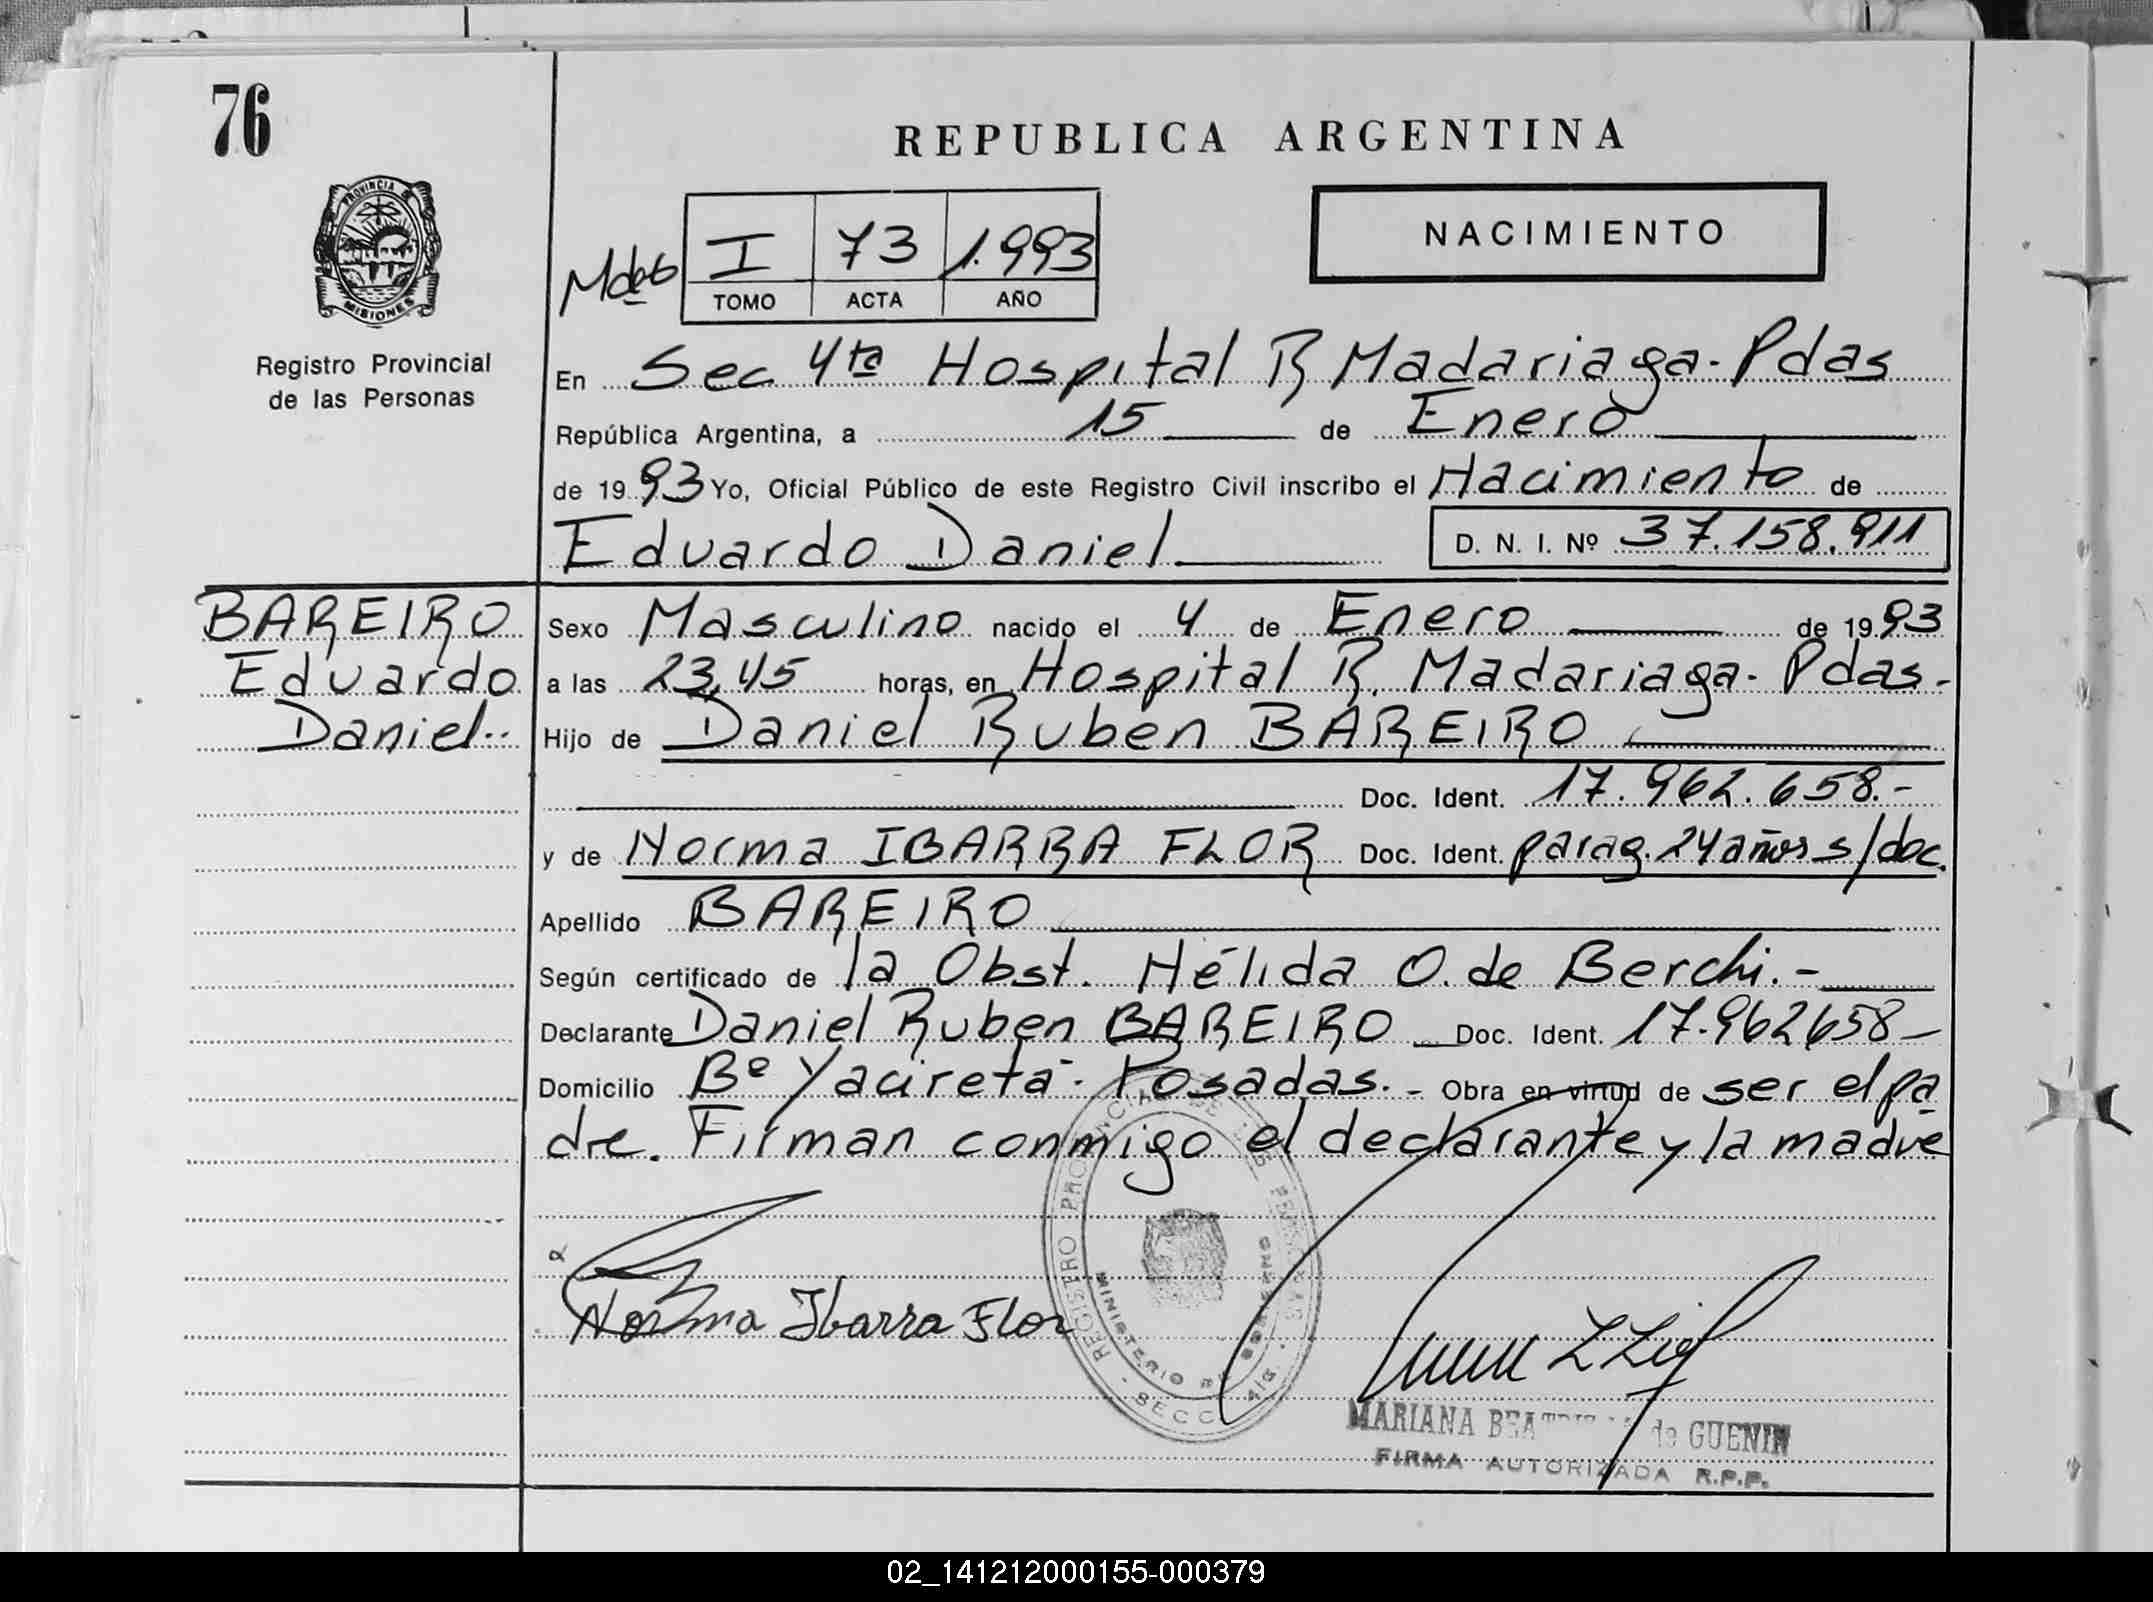 76
REPUBLICA ARGENTINA
PROVINCIA DE MISIONES
I 73 1.993
TOMO ACTA AÑO
NACIMIENTO
Registro Provincial
de las Personas
En Sec 4ta Hospital R Madariaga - Pdas
República Argentina, a 15 de Enero
de 1993 Yo, Oficial Público de este Registro Civil inscribo el Nacimiento de
Eduardo Daniel D. N. I. Nº 37.158.911
BAREIRO
Eduardo
Daniel..
Sexo Masculino nacido el 4 de Enero de 1993
a las 23,45 horas, en Hospital R. Madariaga - Pdas.-
Hijo de Daniel Ruben BAREIRO
Doc. Ident. 17.962.658.-
y de Norma IBARRA FLOR Doc. Ident. parag. 24 años s/doc.
Apellido BAREIRO
Según certificado de la Obst. Hélida O. de Berchi.-
Declarante Daniel Ruben BAREIRO Doc. Ident. 17.962658-
Domicilio Bº Yacireta - Posadas.- Obra en virtud de ser el pa
dre. Firman conmigo el declarante y la madre
Norma Ibarra Flor
REGISTRO PROVINCIAL DE LAS PERSONAS
MINISTERIO DE GOBIERNO
SECC. 4ta.
MARIANA de GUENIN
FIRMA AUTORIZADA R.P.P.
02_141212000155-000379